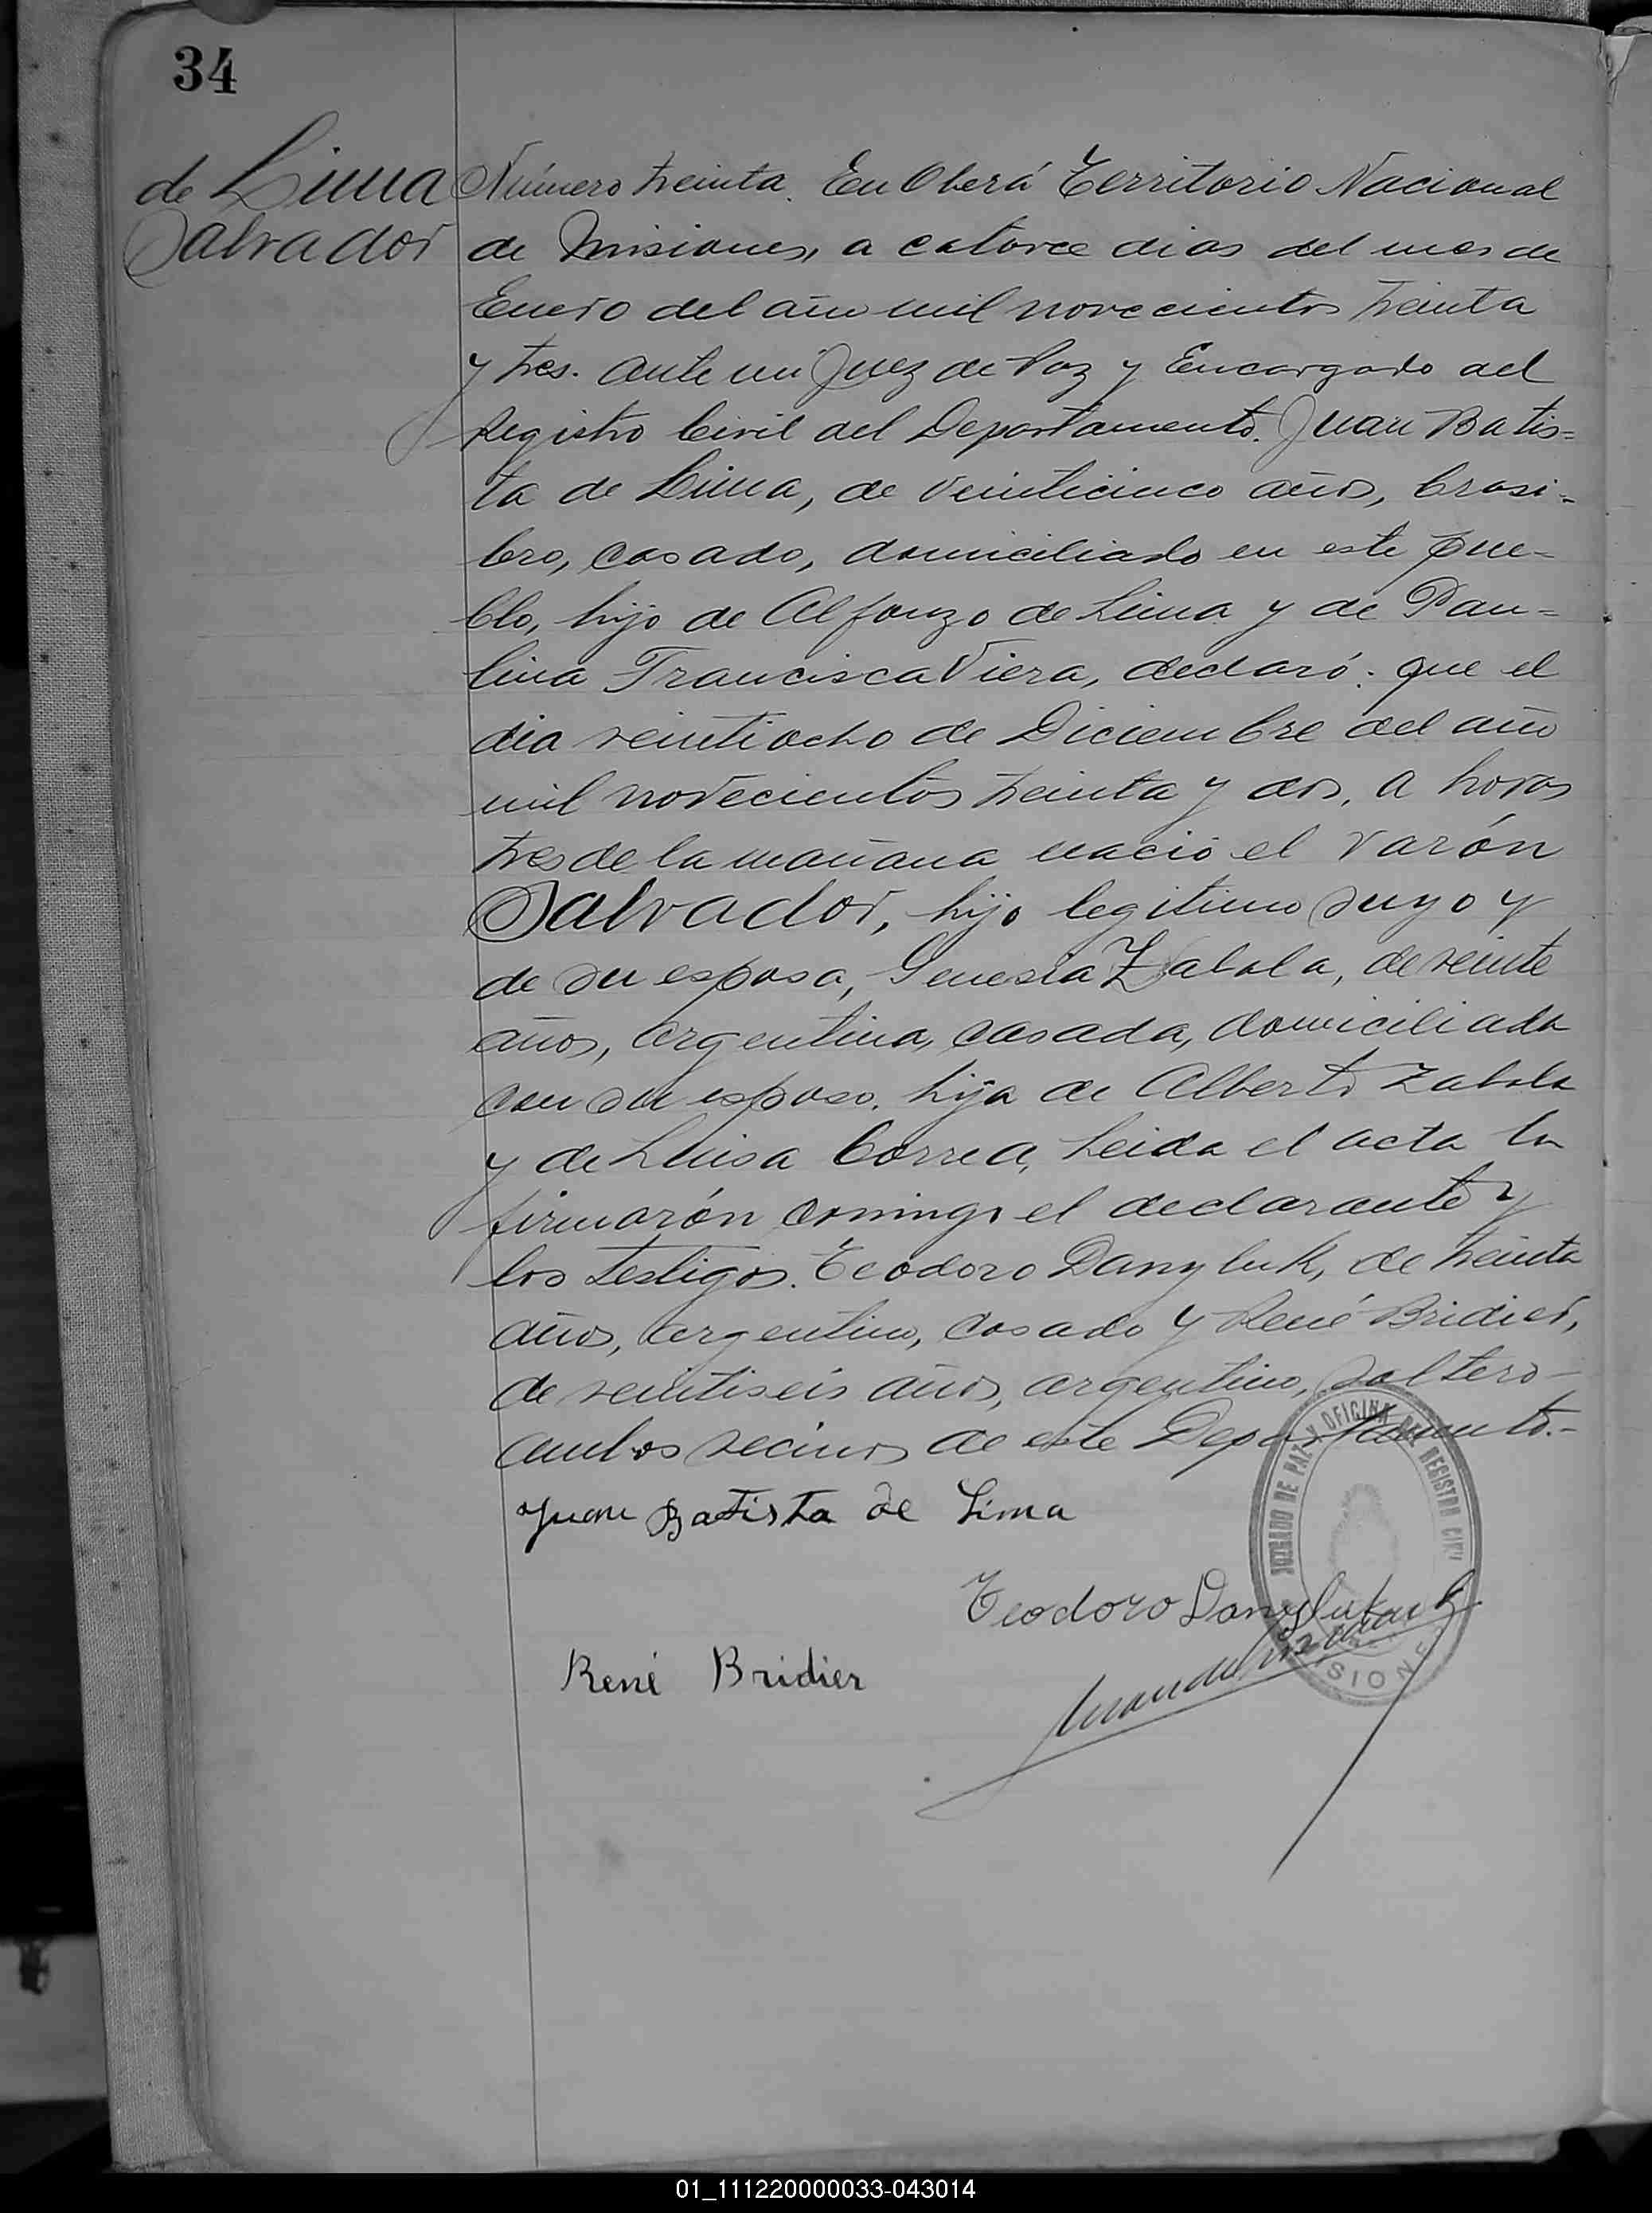 34
de Lima
Salvador
Número treinta. En Oberá Territorio Nacional
de Misiones, a catorce dias del mes de
Enero del año mil novecientos treinta
y tres. ante mi Juez de Paz y Encargado del
Registro Civil del Departamento. Juan Batis=
ta de Lima, de veinticinco años, brasi-
lero, casado, domiciliado en este pue-
blo, hijo de Alfonzo de Lima y de Pau-
lina Francisca Viera, declaró: que el
dia veintiocho de Diciembre del año
mil novecientos treinta y dos, a horas
tres de la mañana nació el varón
Salvador, hijo legitimo suyo y
de su esposa, Genesia Zabala, de veinte
años, argentina, casada, domiciliada
con su esposo. hija de Alberto Zabala
y de Luisa Correa, Leida el acta la
firmarón conmigo el declarante y
los testigos. Teodoro Danyluk, de treinta
años, argentino, casado y René Bridier,
de veintiseis años, argentino, soltero-
ambos vecinos de este Departamento.-
Juan Batista de Lima
Teodoro Danyluk
René Bridier
JUZGADO DE PAZ Y OFICINA DEL REGISTRO CIVIL
MISIONES
01_111220000033-043014